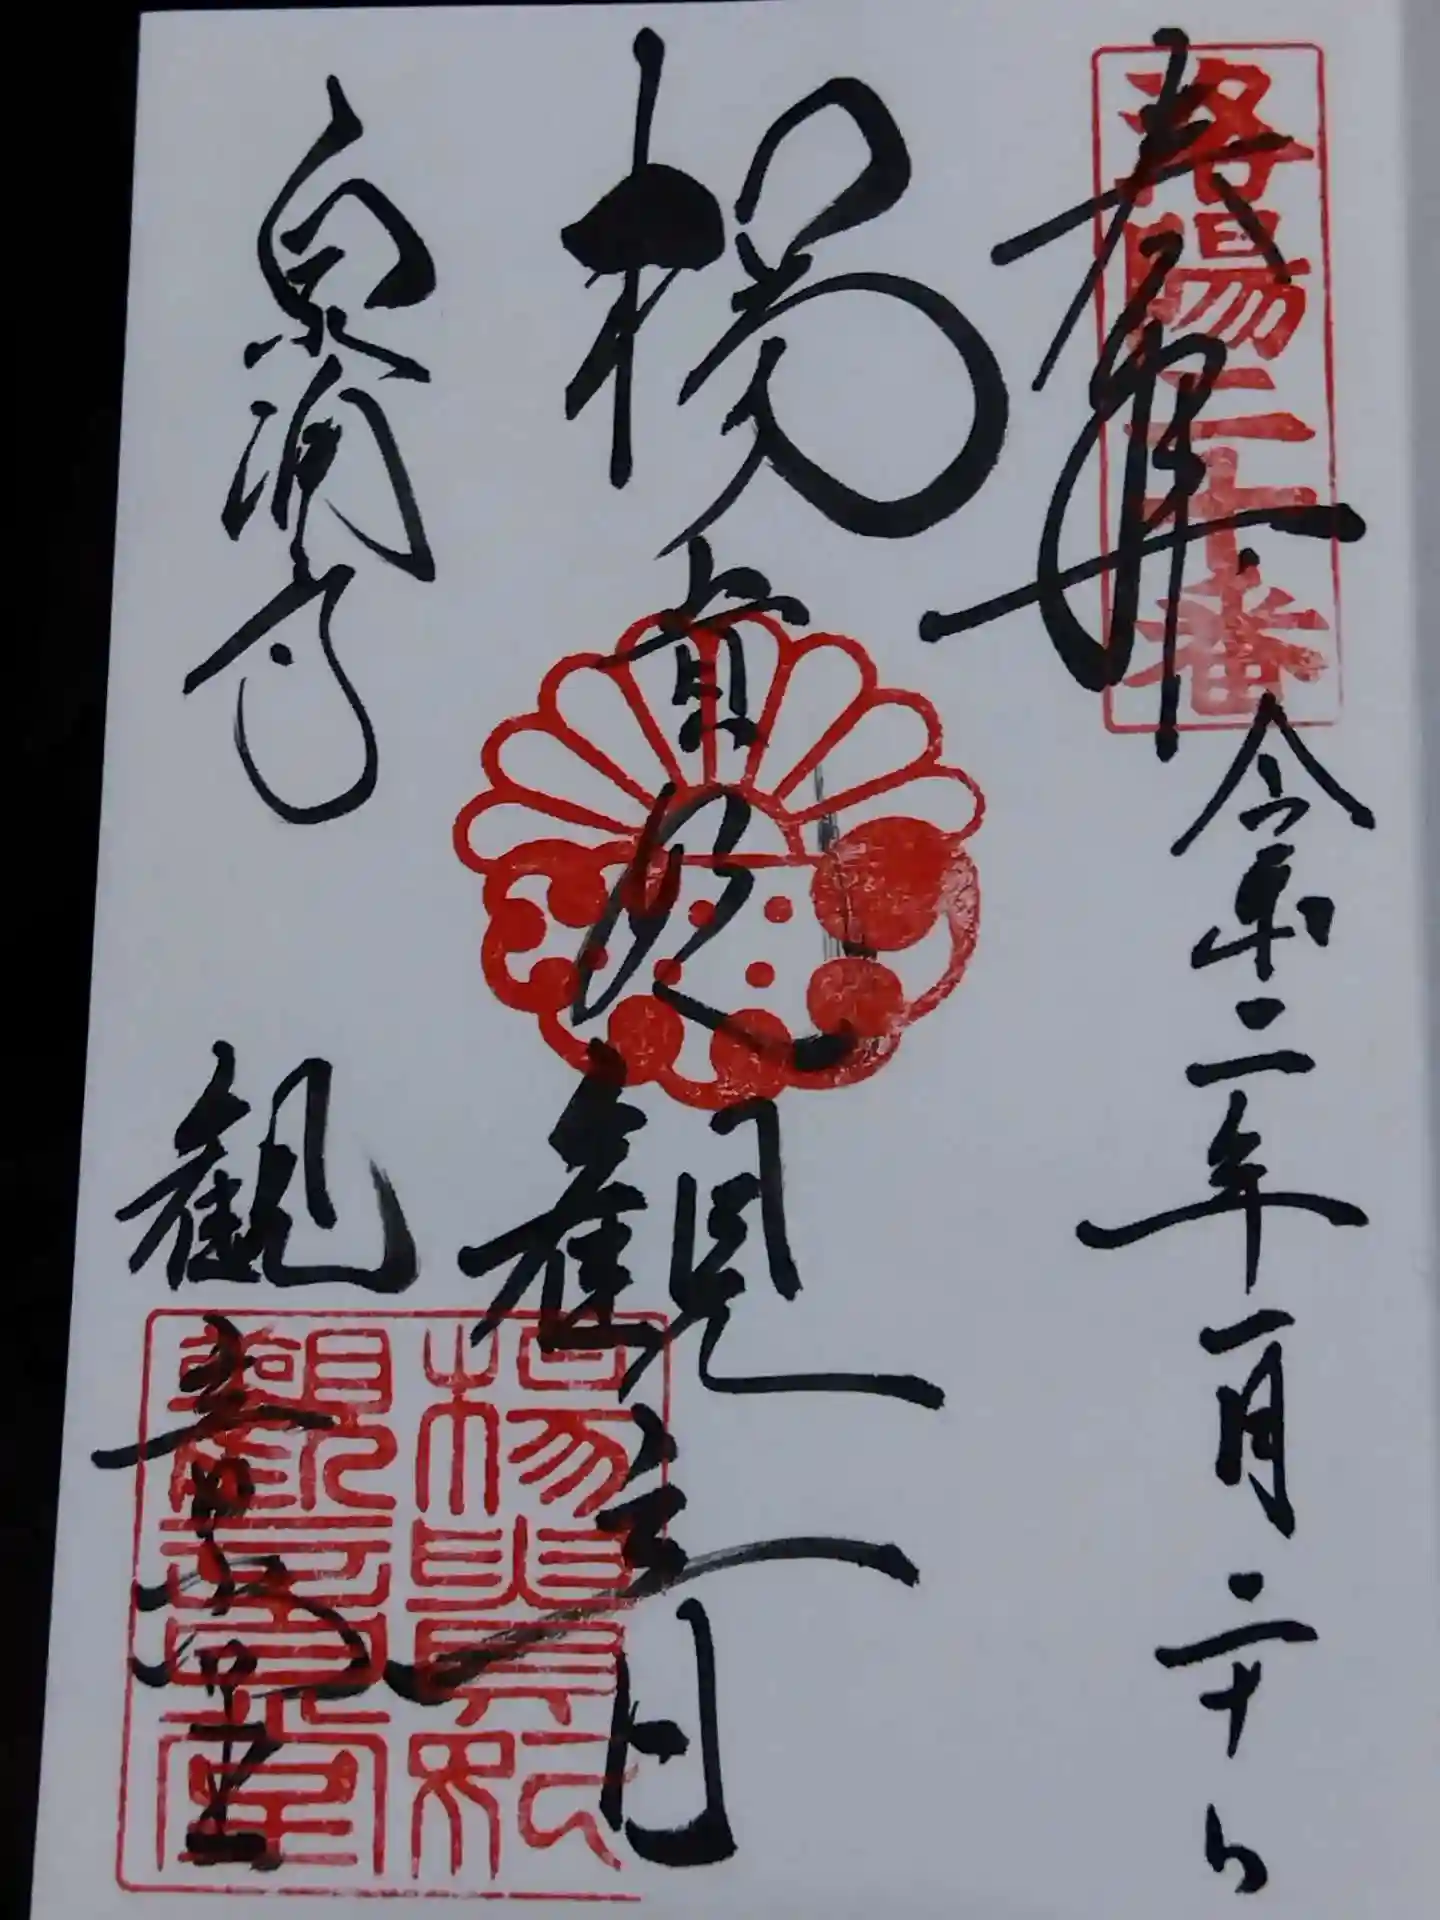 洛陽二十番
奉拝
令和二年一月二十日
楊貴妃観音
泉涌寺
観音堂
楊貴妃
觀音堂